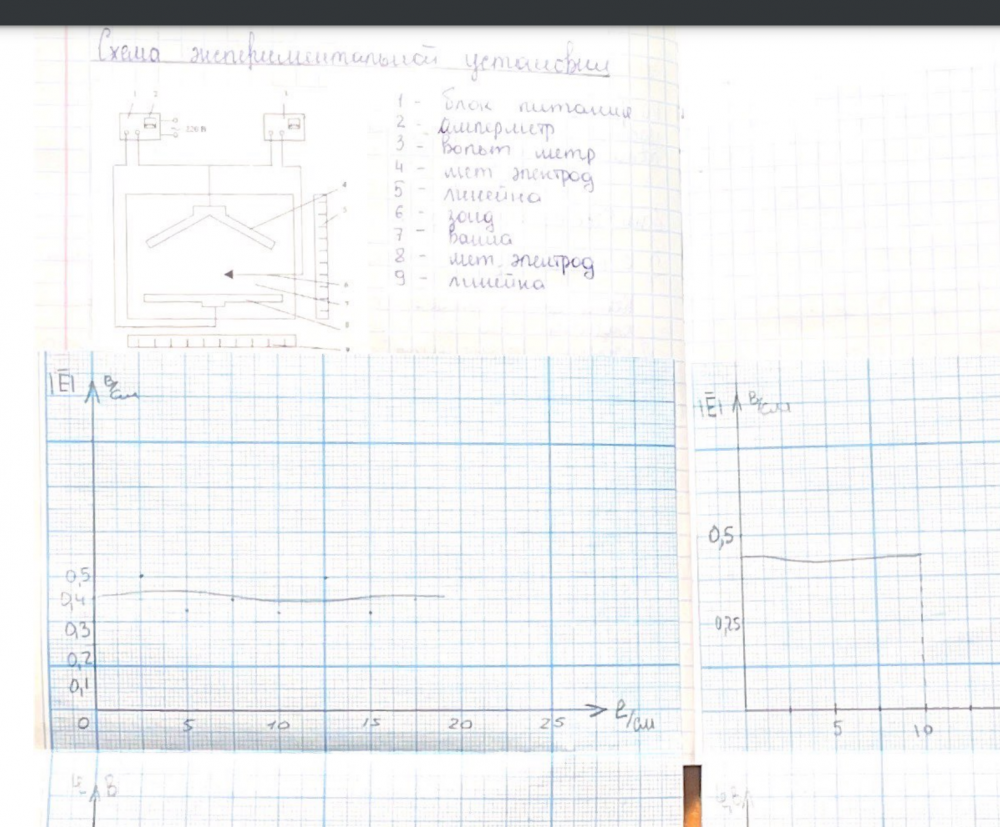 Схема экспериментальной установки
1 2 3
220 В
4
5
6
7
8
9
1 - блок питания
2 - амперметр
3 - вольтметр
4 - мет электрод
5 - линейка
6 - зонд
7 - ванна
8 - мет. электрод
9 - линейка
|E̅| В/см
0,5
0,4
0,3
0,2
0,1
0 5 10 15 20 25 l/см
|E̅| В/см
0,5
0,25
5 10
φ, В
φ, В